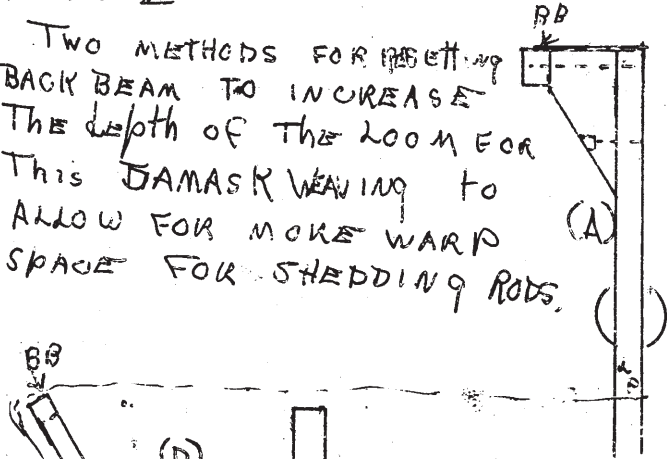 BB
Two METHODS FOR RESETTING
BACK BEAM TO INCREASE
The depth of The LOOM FOR
This DAMASK WEAVING to
ALLOW FOR MORE WARP
SPACE FOR SHEDDING RODS.
(A)
BB